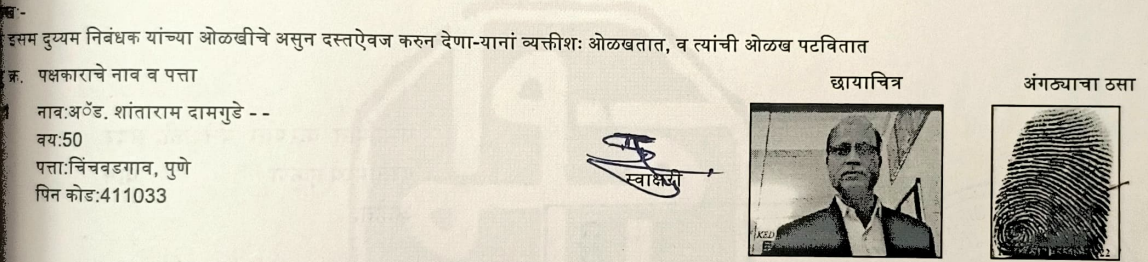 ख:-
इसम दुय्यम निबंधक यांच्या ओळखीचे असुन दस्तऐवज करुन देणा-यानां व्यक्तीशः ओळखतात, व त्यांची ओळख पटवितात
क्र. पक्षकाराचे नाव व पत्ता
छायाचित्र
अंगठ्याचा ठसा
1 नाव:अॅड. शांताराम दामगुडे - -
वय:50
पत्ता:चिंचवडगाव, पुणे
पिन कोड:411033
स्वाक्षरी